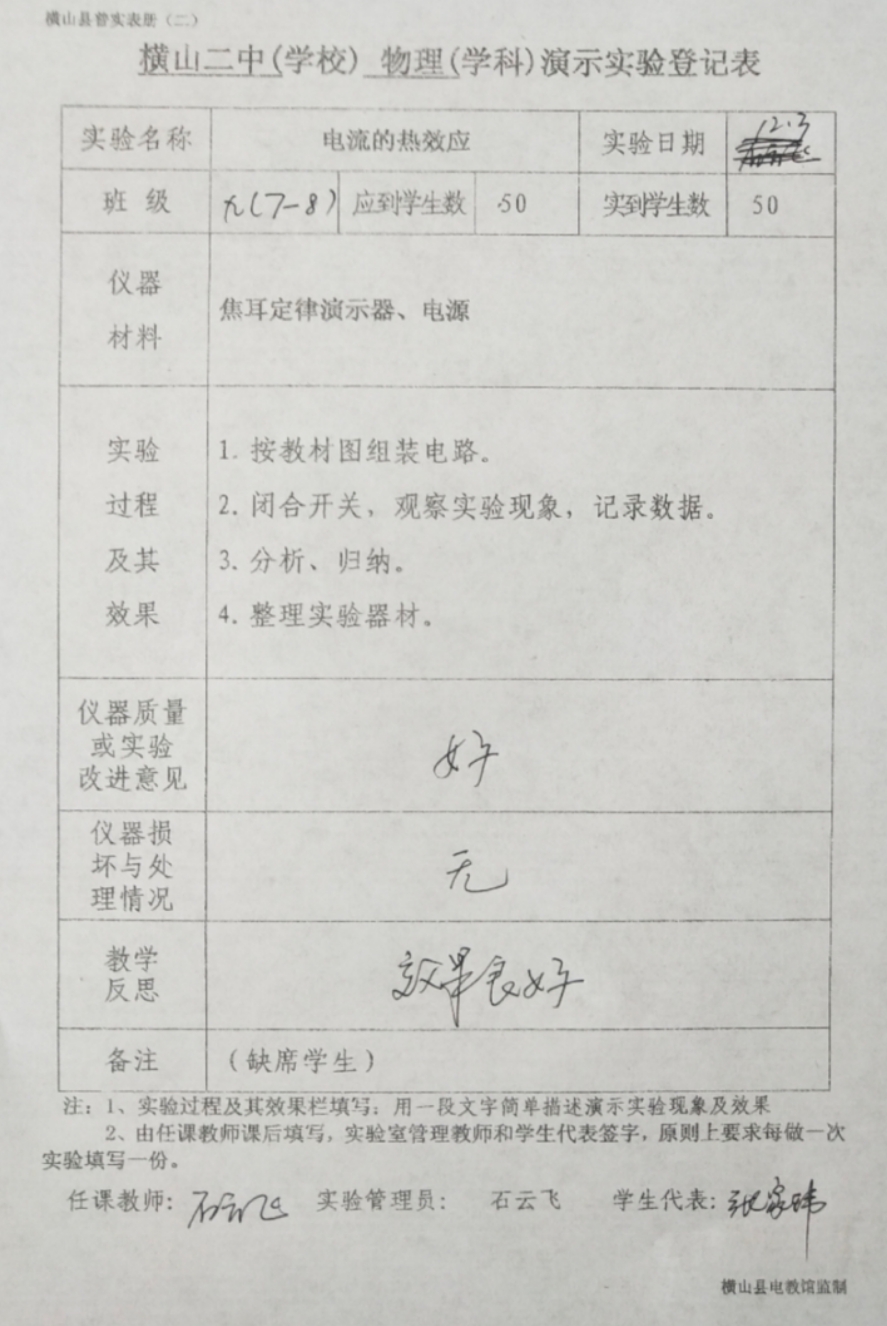 横山县普实表册（二）
横山二中(学校) 物理(学科)演示实验登记表
实验名称 电流的热效应 实验日期 12.3
班 级 九(7-8) 应到学生数 50 实到学生数 50
仪器
材料
焦耳定律演示器、电源
实验
过程
及其
效果
1. 按教材图组装电路。
2. 闭合开关，观察实验现象，记录数据。
3. 分析、归纳。
4. 整理实验器材。
仪器质量
或实验
改进意见
好
仪器损
坏与处
理情况
无
教学
反思
效果良好
备注 （缺席学生）
注：1、实验过程及其效果栏填写：用一段文字简单描述演示实验现象及效果
2、由任课教师课后填写，实验室管理教师和学生代表签字，原则上要求每做一次
实验填写一份。
任课教师：石云飞 实验管理员： 石云飞 学生代表：张家玮
横山县电教馆监制